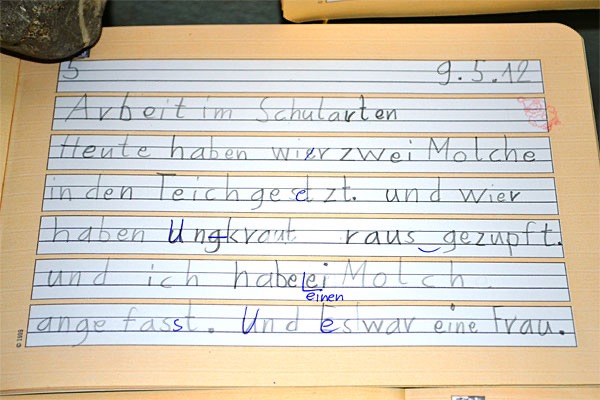 5 9.5.12
Arbeit im Schularten
Heute haben wier zwei Molche
in den Teich gesetzt. und wier
haben Ungkraut raus gezupft.
und ich habe ei Molch
einen
angefasst. Und es war eine Frau.